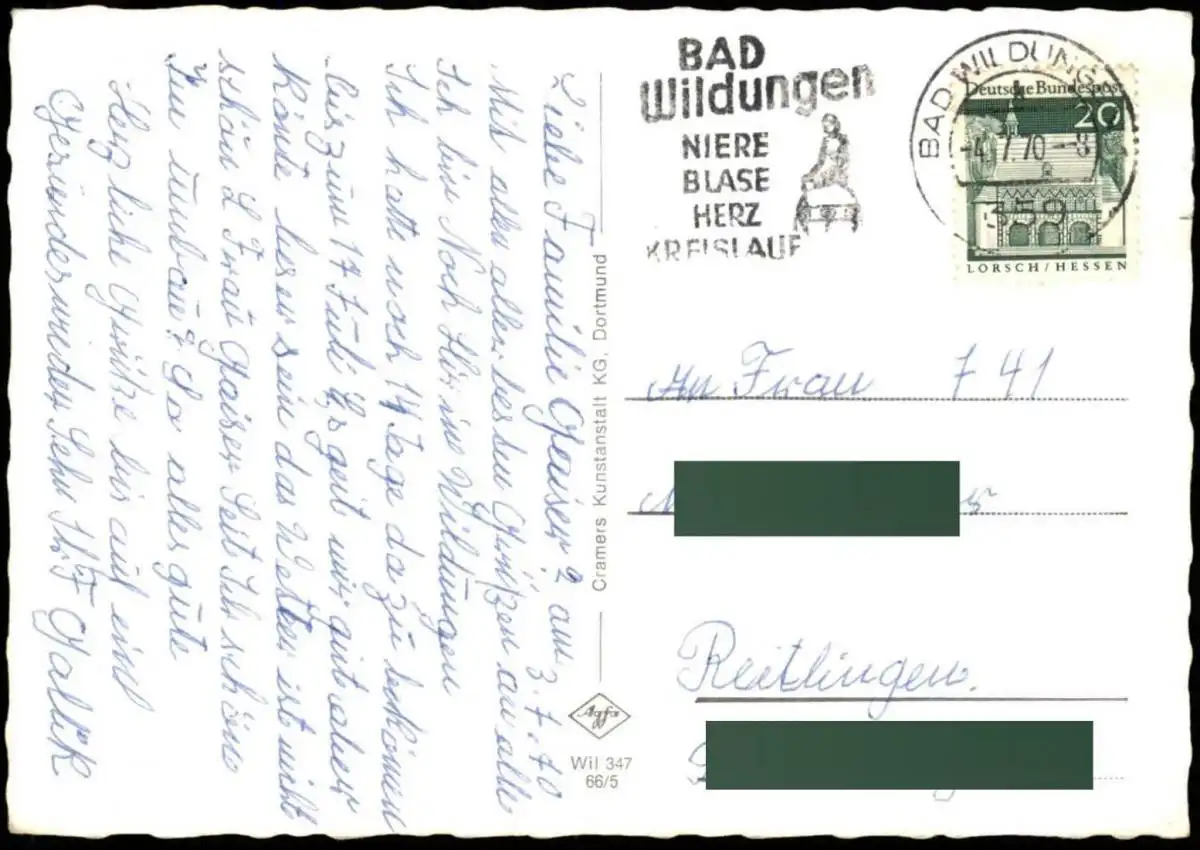 Liebe Familie Gaiser? am 3.7.70
Mit allen allerbesten Grüßen an alle
Ich bin Noch Hir in Wildungen
Ich hatte noch 14 Tage dazu bekomen
bis zum 17 Juli Es geit mir gut aber
könte besser sein das Wetter ist nicht
schön L Frau Gaiser Seit Ihr schön
Im umbau? So alles gute
Herzliche Grüße bis auf eind
Gesundes wieder Sehn Ihr. F Galik
Cramers Kunstanstalt KG, Dortmund
Agfa
Wil 347
66/5
BAD
Wildungen
NIERE
BLASE
HERZ
KREISLAUF
BAD WILDUNGEN
-4.7.70--8
359
Deutsche Bundespost
20
LORSCH/HESSEN
An Frau 741
Reitlingen.